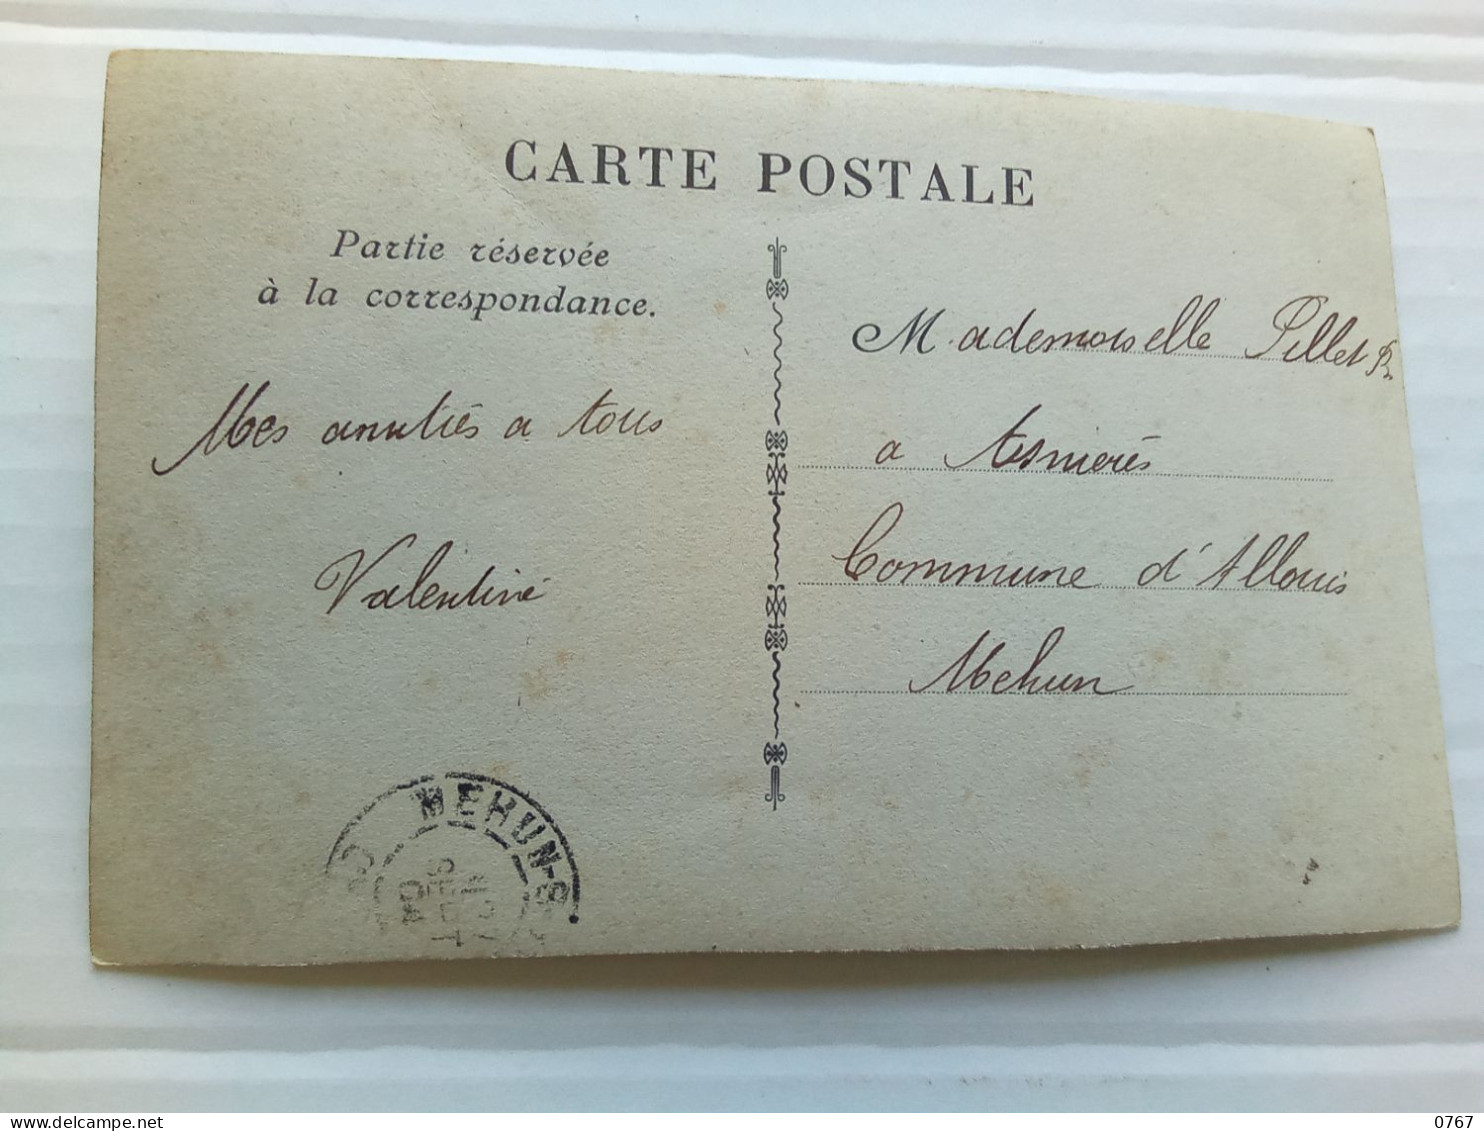 CARTE POSTALE
Partie réservée
à la correspondance.
Mes amitiés a tous
Valentine
Mademoiselle Pillet
a Asnierés
Commune d'Allouis
Mehun
MEHUN-S
0767